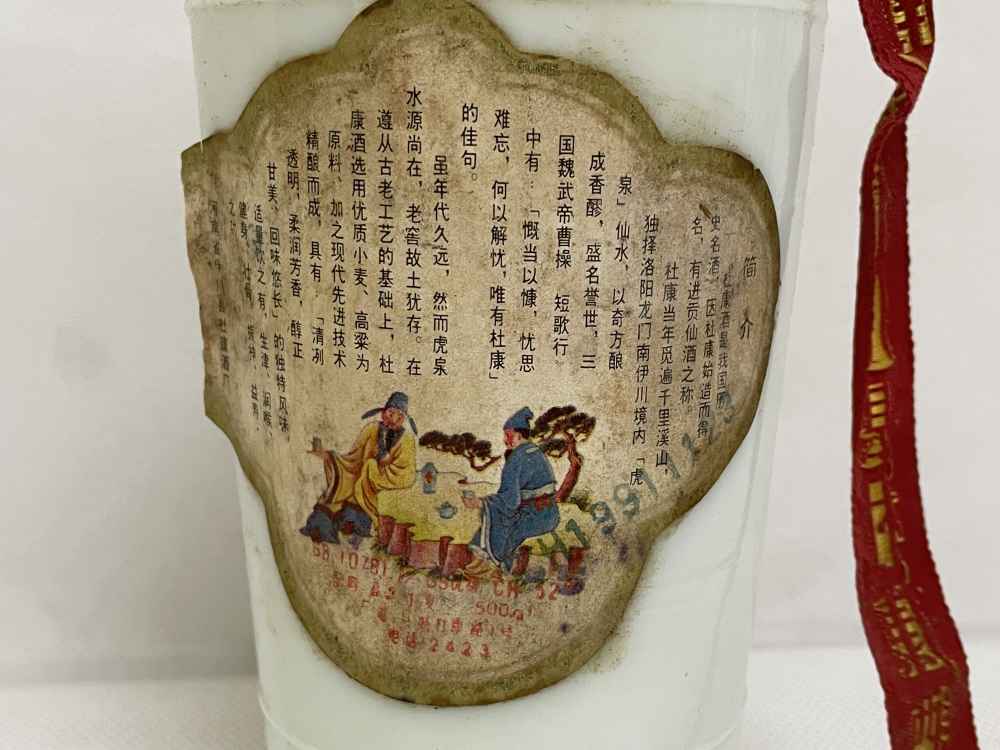 简介
杜康酒是我国历
史名酒,因杜康始造而得
名,有进贡仙酒之称。
杜康当年觅遍千里溪山,
独择洛阳龙门南伊川境内「虎
泉」仙水,以奇方酿
成香醪,盛名誉世,三
国魏武帝曹操 短歌行
中有:「慨当以慷,忧思
难忘,何以解忧,唯有杜康」
的佳句。
虽年代久远,然而虎泉
水源尚在,老窖故土犹存。在
遵从古老工艺的基础上,杜
康酒选用优质小麦、高粱为
原料,加之现代先进技术
精酿而成,具有「清冽
透明,柔润芳香,醇正
甘美,回味悠长」的独特风味
适量饮之有,生津、润喉、
健身、壮骨、提神、益寿
之功
杜康酒厂
500ml
电话2423